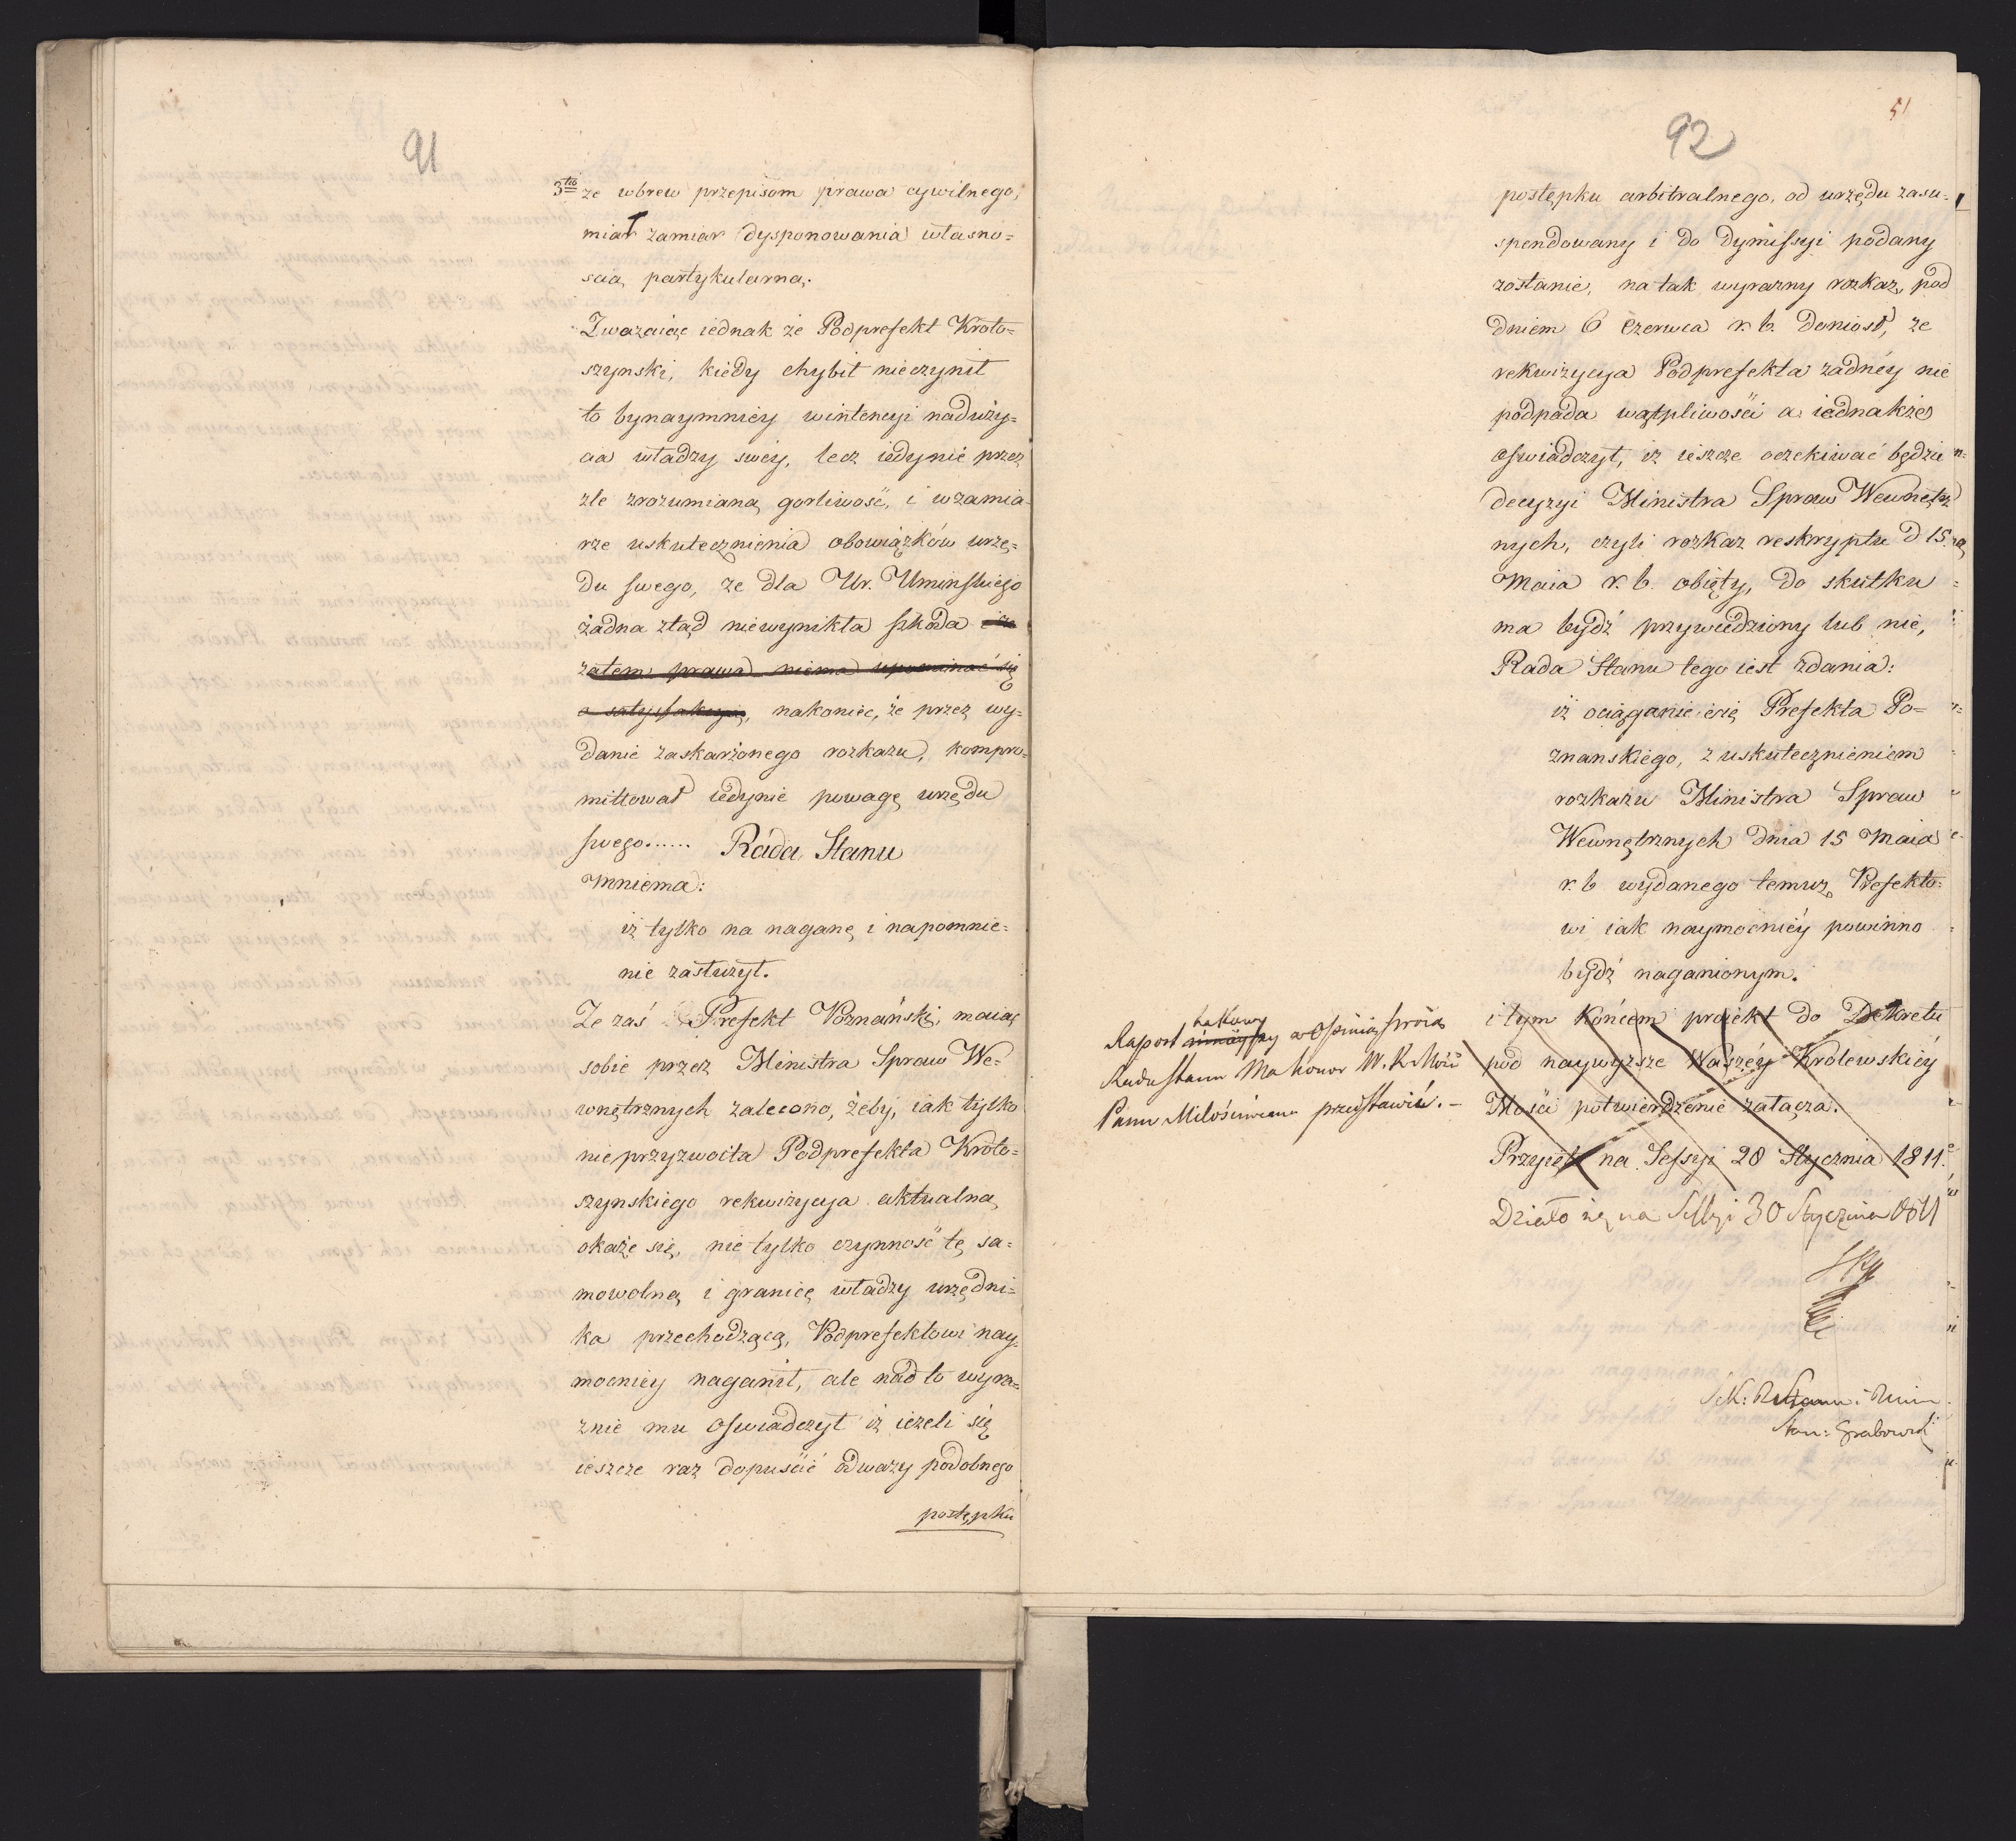 91
3tio że wbrew przepisom prawa cywilnego,
miał zamiar dysponowania własno=
scią partykularną.
Zważaiąc iednak że Podprefekt Kroto=
szynski, kiedy chybił nieczynił
to bynaymniey wintencyi nadużY=
cia władzy swey, lecz iedynie przez
zle zrozumianą gorliwość, i wzamia=
rze uskutecznienia obowiązków urzę=
du swego, że dla Ur. Uminskiego
żadna ztąd niewynikła szkoda i że
zatem prawa niema upominać się
o satysfakcyą, nakoniec, że przez wy=
danie zaskarżonego rozkazu, kompro=
mittował iedynie powagę urzędu
swego...... Rada Stanu
mniema:
iż tylko na naganę i napomnie=
nie zasłużył.
Ze zaś Prefekt Poznański, maiąc
sobie przez Ministra Spraw We=
wnętrznych zalecono, żeby, iak tylko
nieprzyzwoita Podprefekta Kroto=
szynskiego rekwizycya aktualną
okaże się, nie tylko czynność tę sa=
mowolną i granicę władzy urzędni=
ka przechodzącą, Podprefektowi nay=
mocniey naganił, ale nad to wyra=
znie mu oswiadczył iż ieżeli się
ieszcze raz dopuścić odważy podobnego
postępku
51
92
postępku arbitralnego, od urzędu zasu=
spendowany i do dymissyi podany
zostanie, na tak wyrazny rozkaz, pod
dniem 6 Czerwca r. b. doniosł, że
rekwizycya Podprefekta żadnéy nie
podpada wątpliwości a iednakże
oswiadczył, iż ieszcze oczekiwać będzie
decyzyi Ministra Spraw Wewnętrz
nych, czyli rozkaz reskryptu d 15.
Maia r. b. obięty, do skutku
ma bydź przywiedziony lub nie,
Rada Stanu tego iest zdania:
iż ociąganie się Prefekta Po=
znanskiego, z uskutecznieniem
rozkazu Ministra Spraw
Wewnętrznych dnia 15 Maia
r. b wydanego temuż Prefekto=
wi iak naymocniéy powinno
bydź naganionym.
i tym końcem proiekt do Dekretu
pod naywyższe Waszéy Królewskiéy
Mości potwierdzenie załącza.
Przyięto na Sessyi 28 Stycznia 1811.
takowy
Raport ninieyszy z Opinią swoią
Rada Stanu Ma honor W. K. Mości
Panu Miłościwemu przedstawić. –
Działo się na Sessyi 30 Stycznia 1811
Sek: R. Stanu i Min
Stan: Grabowski